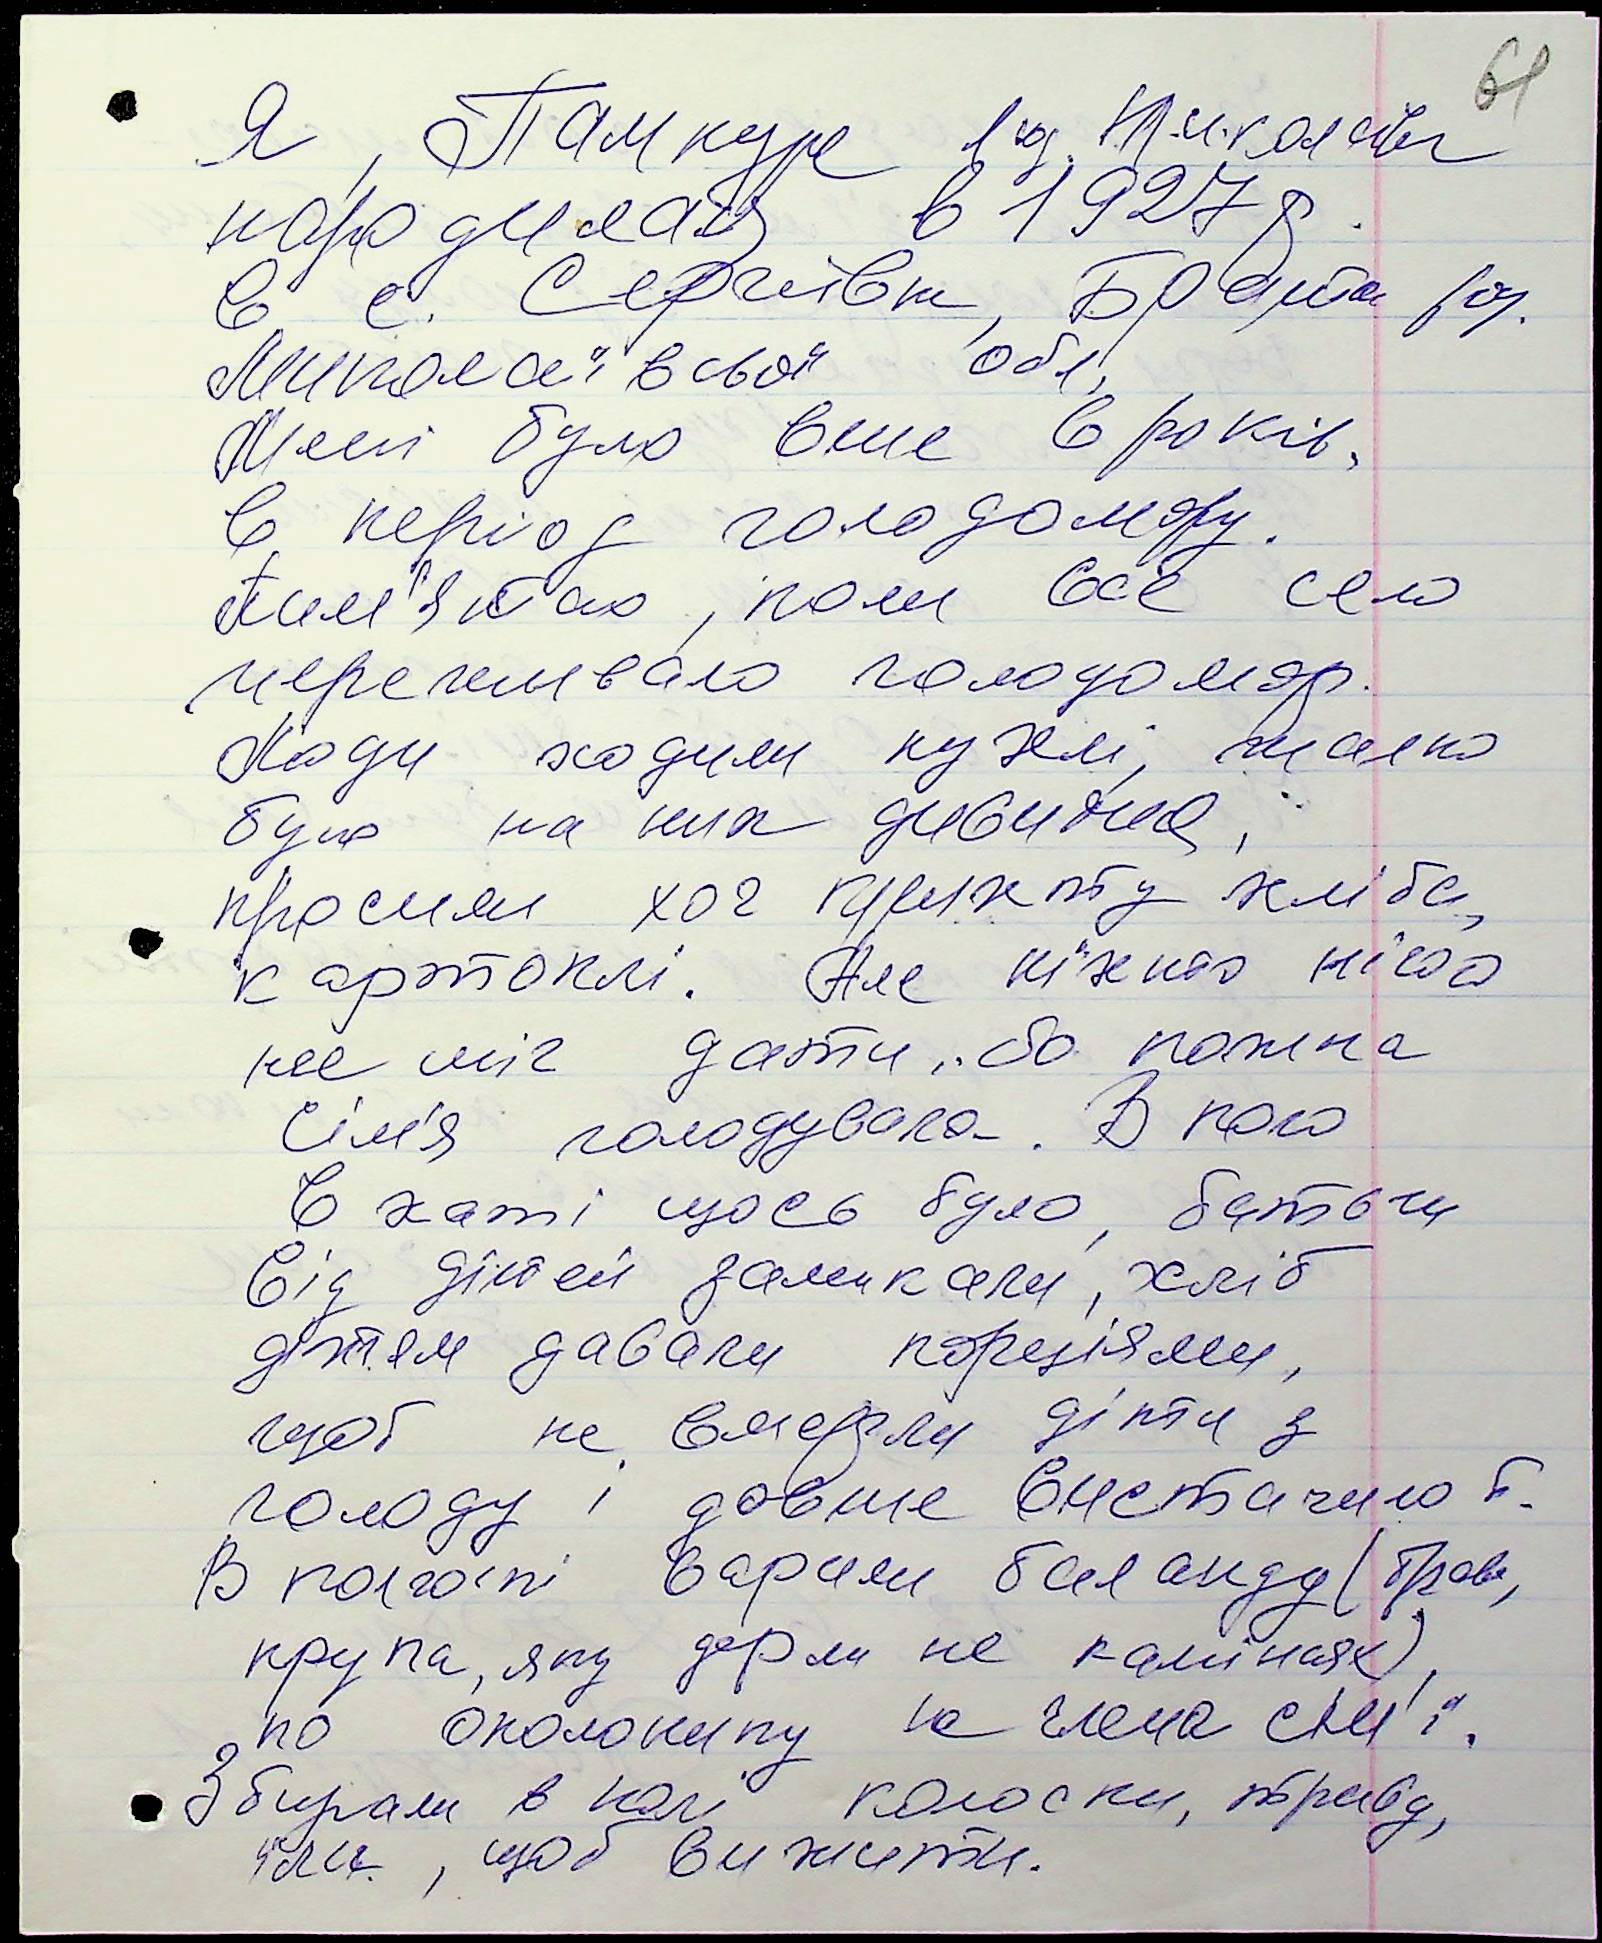 61
Я, Памкура Люд. Миколаївн
народилась в 1927 р.
в с. Сергіївки, Братськ. рог.
Миколаївської обл.
Мені було вже 6 років,
в період голодомору.
Пам'ятаю, коли все село
переживало голодомор.
Люди ходили пухлі, жалко
було на них дивитись,
просили хоч крихту хліба,
картоплі. Але ніхто нічого
не міг дати, бо кожна
сім'я голодувала. В кого
в хаті щось було, батьки
від дітей замикали, хліб
дітям давали порціями,
щоб не вмерли діти з
голоду і довше вистачило б.
В колгоспі варили баланду (трава,
крупа, яку дерли на камінях),
по ополонику на члена сім'ї.
Збирали в полі колоски, траву,
їли, щоб вижити.